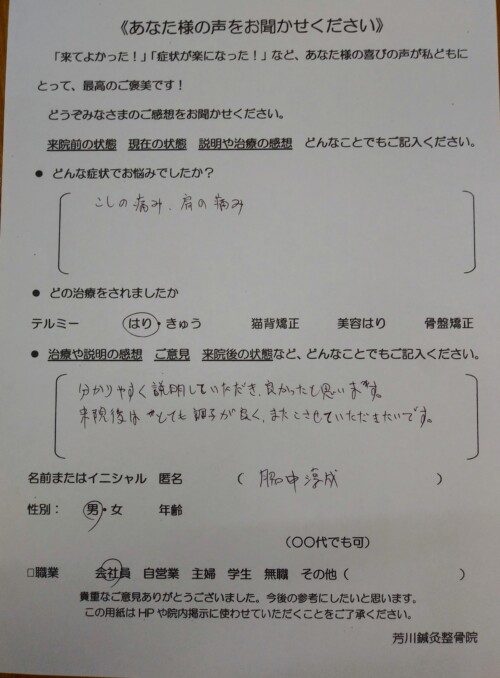 《あなた様の声をお聞かせください》
「来てよかった！」「症状が楽になった！」など、あなた様の喜びの声が私どもに
とって、最高のご褒美です！
どうぞみなさまのご感想をお聞かせください。
来院前の状態 現在の状態 説明や治療の感想 どんなことでもご記入ください。
● どんな症状でお悩みでしたか？
こしの痛み、肩の痛み
● どの治療をされましたか
テルミー はり・きゅう 猫背矯正 美容はり 骨盤矯正
● 治療や説明の感想 ご意見 来院後の状態など、どんなことでもご記入ください。
分かりやすく説明していただき、良かったと思います。
来院後はとても調子が良く、またこさせていただきたいです。
名前またはイニシャル 匿名 （ 脇中淳成 ）
性別： 男・女 年齢
（〇〇代でも可）
□職業 会社員 自営業 主婦 学生 無職 その他（ ）
貴重なご意見ありがとうございました。今後の参考にしたいと思います。
この用紙はHPや院内掲示に使わせていただくことをご了承ください。
芳川鍼灸整骨院